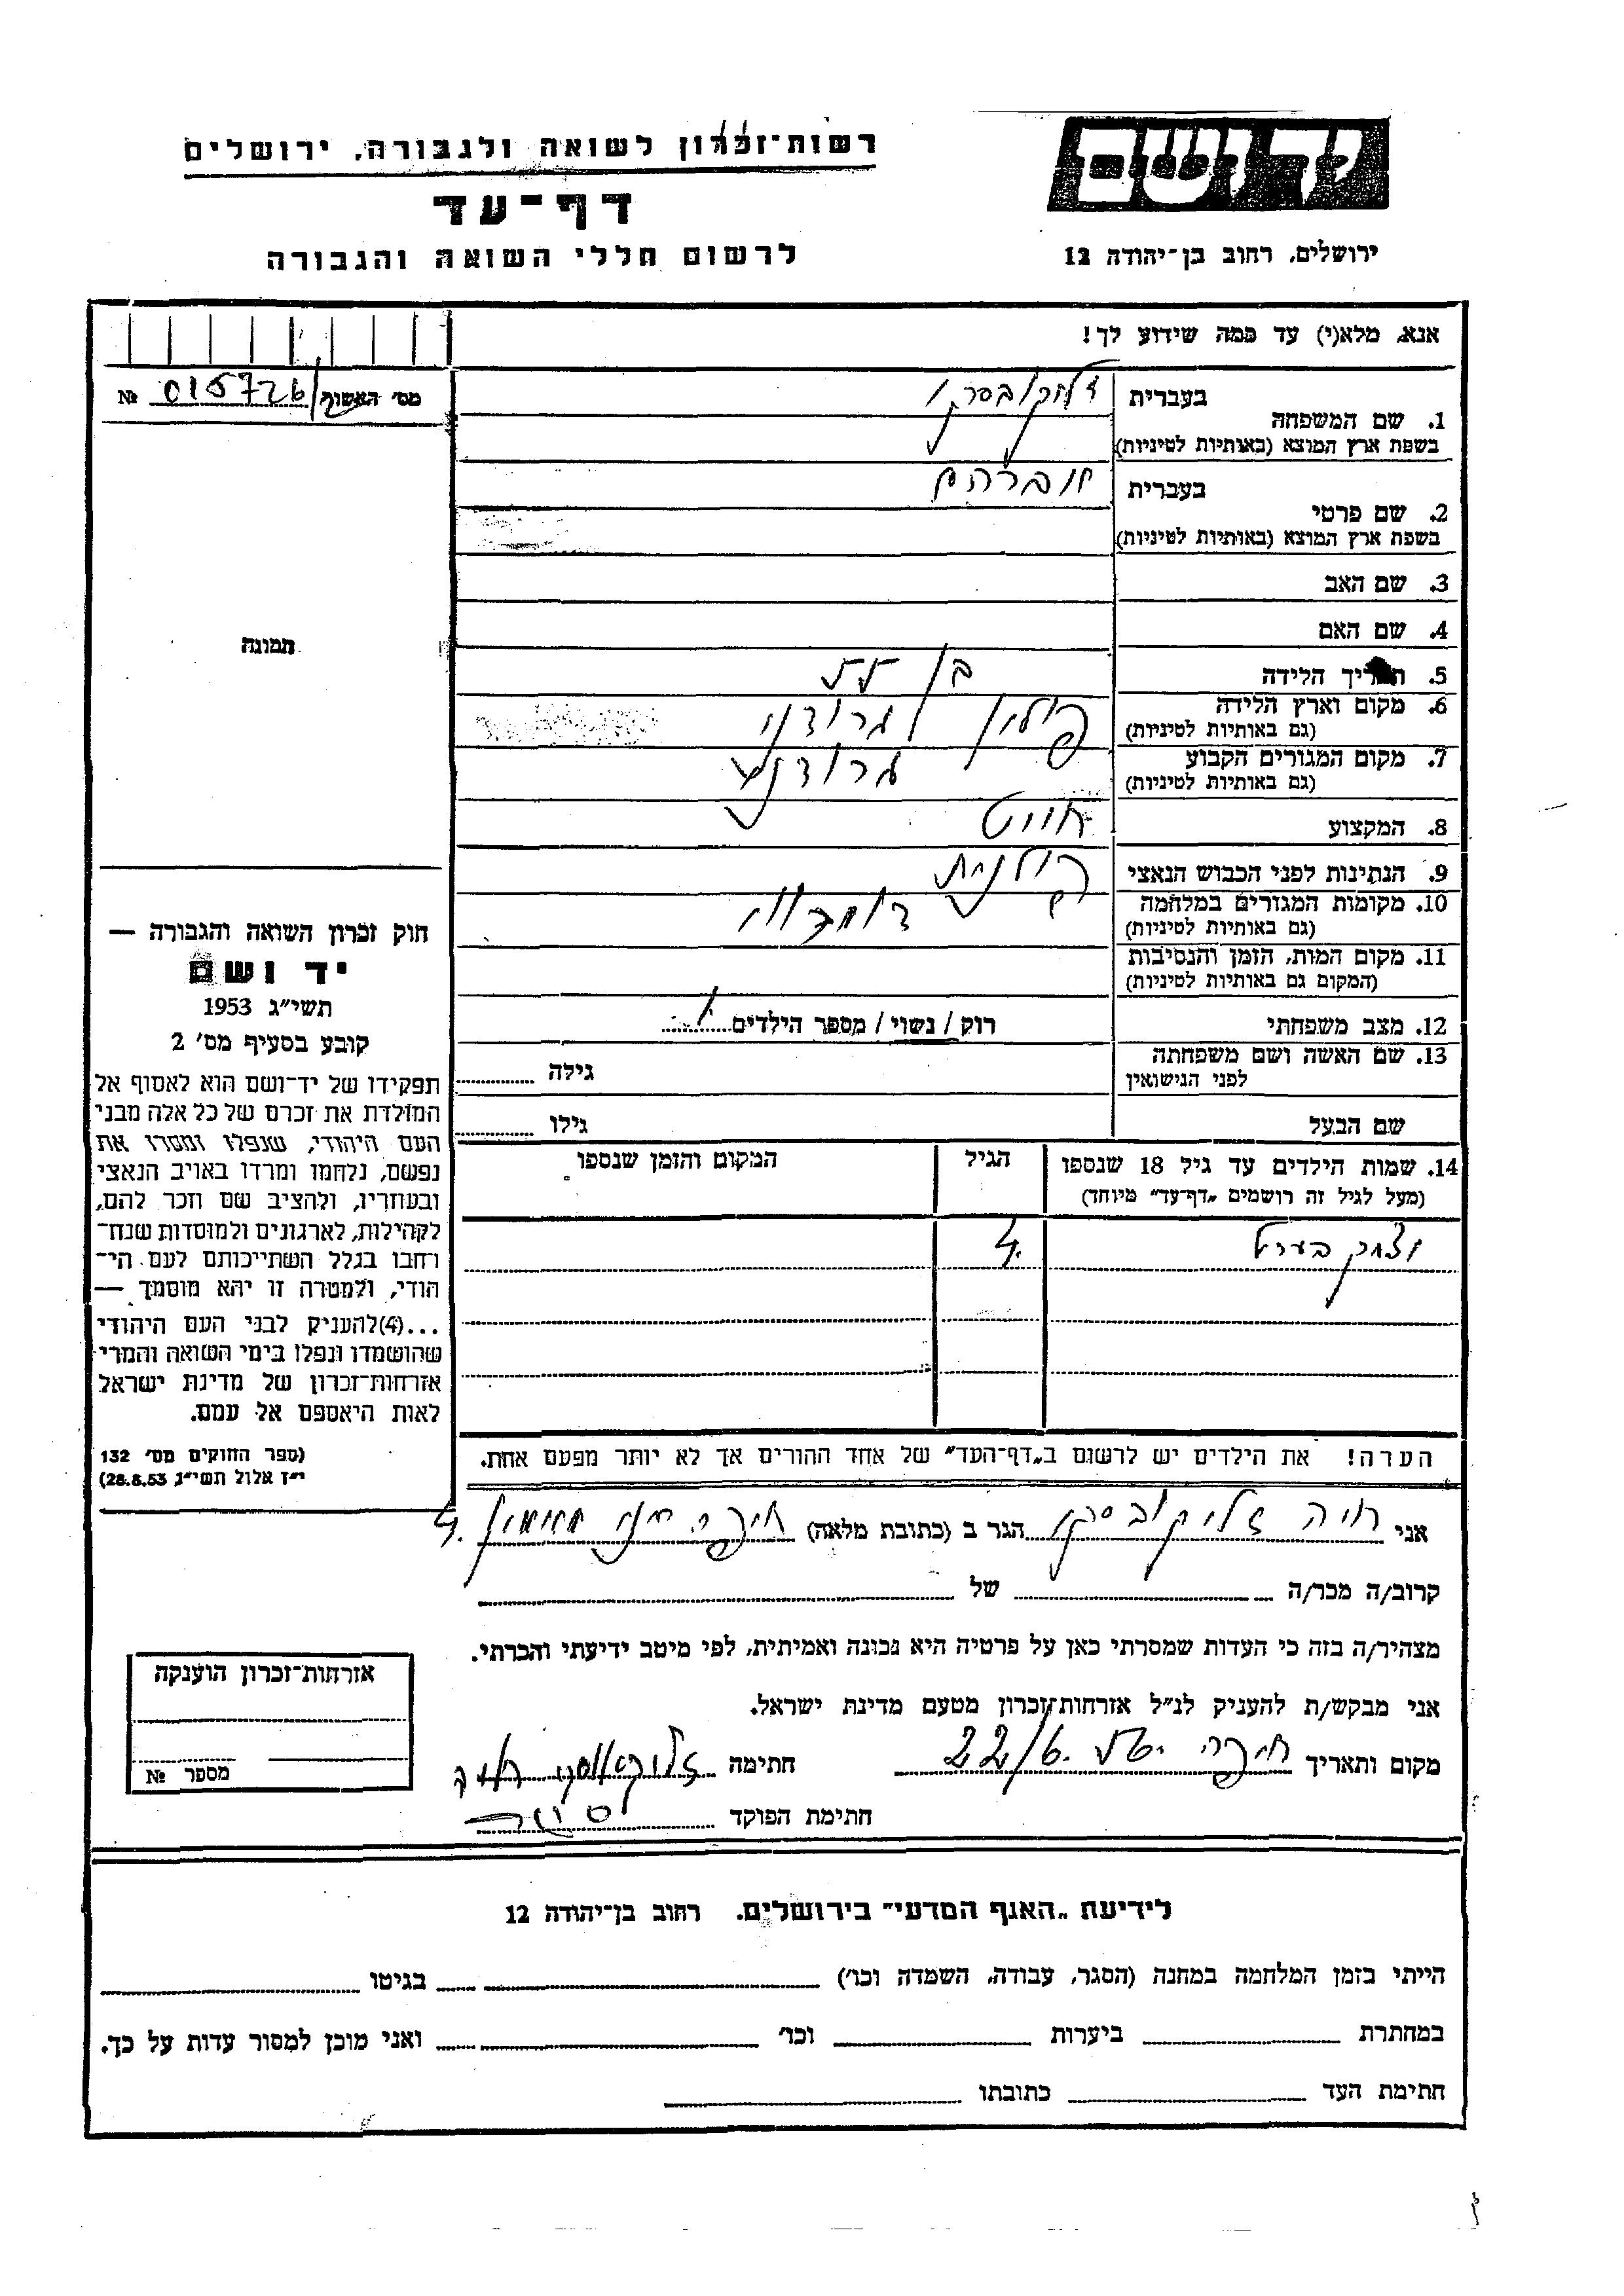 רשות־זכרון לשואה ולגבורה, ירושלים
דף־עד
לרשום חללי השואה והגבורה
יד ושם
ירושלים, רחוב בן־יהודה 12
אנא, מלא(י) עד כמה שידוע לך!
מס' האשור № 015726
תמונה
1. שם המשפחה
בעברית
בשפת ארץ המוצא (באותיות לטיניות)
2. שם פרטי
בעברית אברהם
בשפת ארץ המוצא (באותיות לטיניות)
3. שם האב
4. שם האם
5. תאריך הלידה בן
6. מקום וארץ הלידה פולין גרודני
(גם באותיות לטיניות)
7. מקום המגורים הקבוע
(גם באותיות לטיניות)
8. המקצוע חייט
9. הנתינות לפני הכבוש הנאצי פולנית
10. מקומות המגורים במלחמה
(גם באותיות לטיניות)
11. מקום המות, הזמן והנסיבות
(המקום גם באותיות לטיניות)
12. מצב משפחתי רוק / נשוי / מספר הילדים 1
13. שם האשה ושם משפחתה גילה
לפני הנישואין
שם הבעל גילו
14. שמות הילדים עד גיל 18 שנספו הגיל המקום והזמן שנספו
(מעל לגיל זה רושמים „דף־עד” מיוחד)
יצחק 4
הערה! את הילדים יש לרשום ב„דף־העד” של אחד ההורים אך לא יותר מפעם אחת.
חוק זכרון השואה והגבורה —
יד ושם
תשי״ג 1953
קובע בסעיף מס' 2
תפקידו של יד־ושם הוא לאסוף אל
המולדת את זכרם של כל אלה מבני
העם היהודי, שנפלו ומסרו את
נפשם, נלחמו ומרדו באויב הנאצי
ובעוזריו, ולהציב שם וזכר להם,
לקהילות, לארגונים ולמוסדות שנח־
רחבו בגלל השתייכותם לעם הי־
הודי, ולמטרה זו יהא מוסמך —
...(4)להעניק לבני העם היהודי
שהושמדו ונפלו בימי השואה והמרי
אזרחות־זכרון של מדינת ישראל
לאות היאספם אל עמם.
(ספר החוקים מס' 132
י״ז אלול תשי״ג, 28.8.53)
אני חיה זליקובסקי הגר ב (כתובת מלאה) חיפה 4
קרוב/ה מכר/ה של
מצהיר/ה בזה כי העדות שמסרתי כאן על פרטיה היא נכונה ואמיתית, לפי מיטב ידיעתי והכרתי.
אני מבקש/ת להעניק לנ״ל אזרחות־זכרון מטעם מדינת ישראל.
מקום ותאריך חיפה 22/6 חתימה
חתימת הפוקד
אזרחות־זכרון הוענקה
מספר №
לידיעת „האגף המדעי” בירושלים. רחוב בן־יהודה 12
הייתי בזמן המלחמה במחנה (הסגר, עבודה, השמדה וכו') בגיטו
במחתרת ביערות וכו' ואני מוכן למסור עדות על כך.
חתימת העד כתובתו